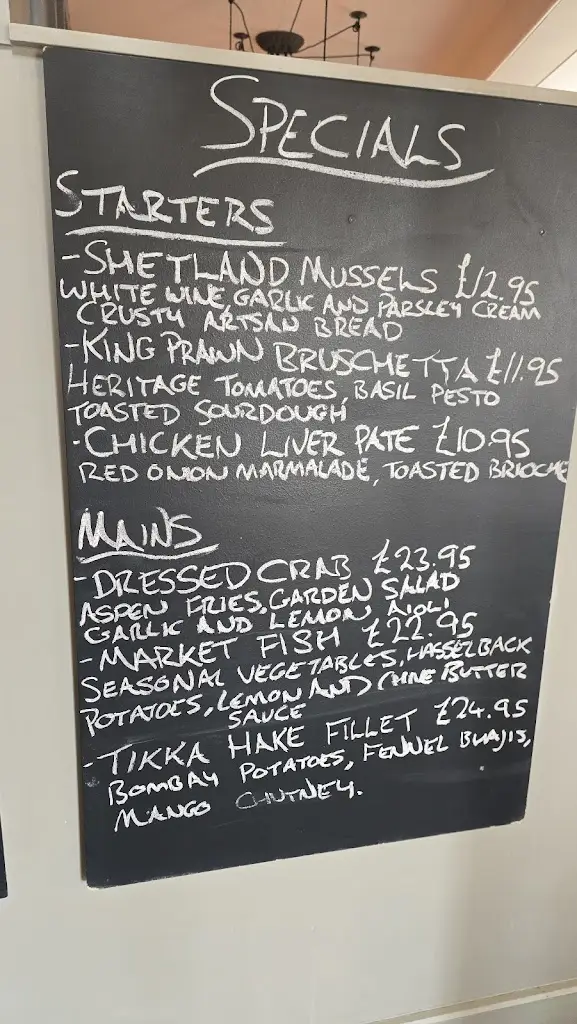 SPECIALS
STARTERS
- SHETLAND MUSSELS £12.95
WHITE WINE, GARLIC AND PARSLEY CREAM
CRUSTY ARTSAN BREAD
- KING PRAWN BRUSCHETTA £11.95
HERITAGE TOMATOES, BASIL PESTO
TOASTED SOURDOUGH
- CHICKEN LIVER PATE £10.95
RED ONION MARMALADE, TOASTED BRIOCHE
MAINS
- DRESSED CRAB £23.95
ASPEN FRIES, GARDEN SALAD
GARLIC AND LEMON AIOLI
- MARKET FISH £22.95
SEASONAL VEGETABLES, HASSELBACK
POTATOES, LEMON AND CHIVE BUTTER
SAUCE
- TIKKA HAKE FILLET £24.95
BOMBAY POTATOES, FENNEL BHAJIS,
MANGO CHUTNEY.